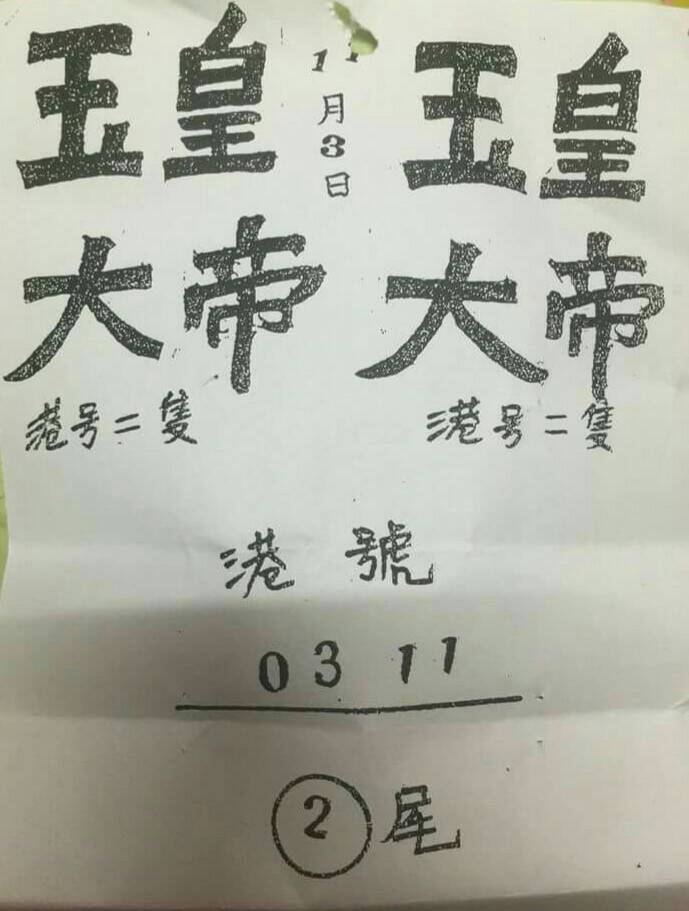 玉皇 11月3日 玉皇
大帝 大帝
港号二隻 港号二隻
港號
03 11
② 尾